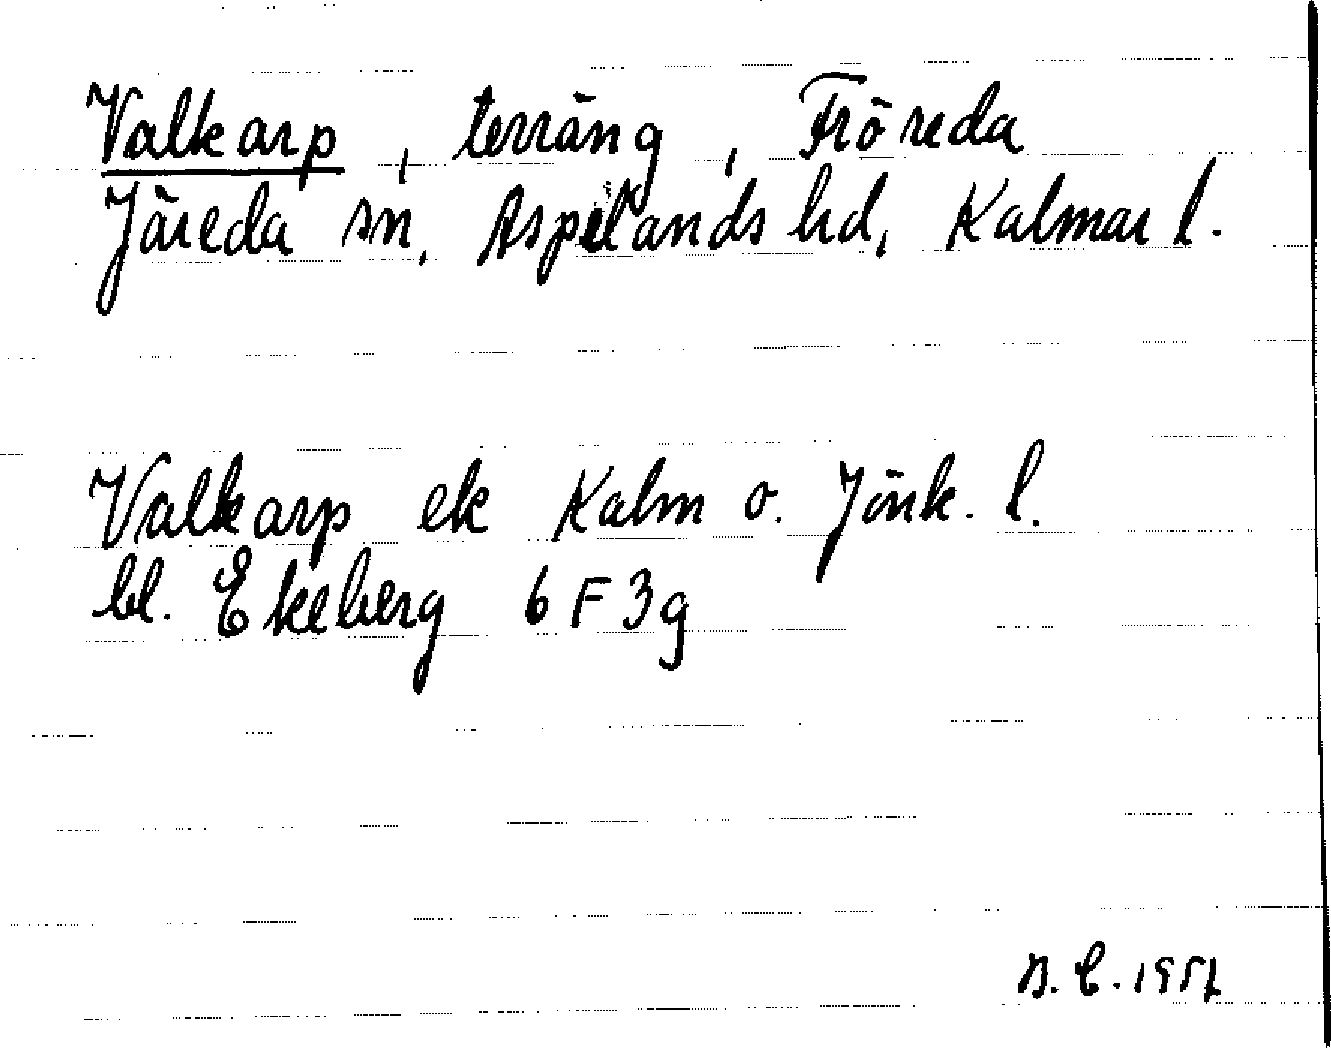 Valkarp, terräng, Fröreda
Järeda sn, Aspelands hd, Kalmar l.
Valkarp ek Kalm o. Jönk. l.
bl. Ekeberg 6F3g
B.E. 1957